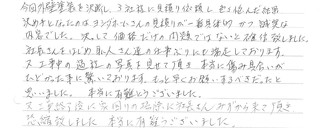 今回外壁塗装を決断し、3社様に見積り依頼し、色々悩んだ結果
決め手となったのはヨシダホームさんの見積りが一番具体的かつ誠実な
内容でした。決して価格だけの問題ではないと確信致しました。
社長さんをはじめ、職人さん達の仕事ぶりにも満足しております。
又工事中の過程の写真も見せて頂き本当に傷み具合いが
ひどかった事に驚いております。もっと早くお願いするべきだったと
思いました。本当に有難うございました。
又工事終了後に古回りの掃除に社長さんみずから来て頂き
恐縮致しました 本当に有難うございました。